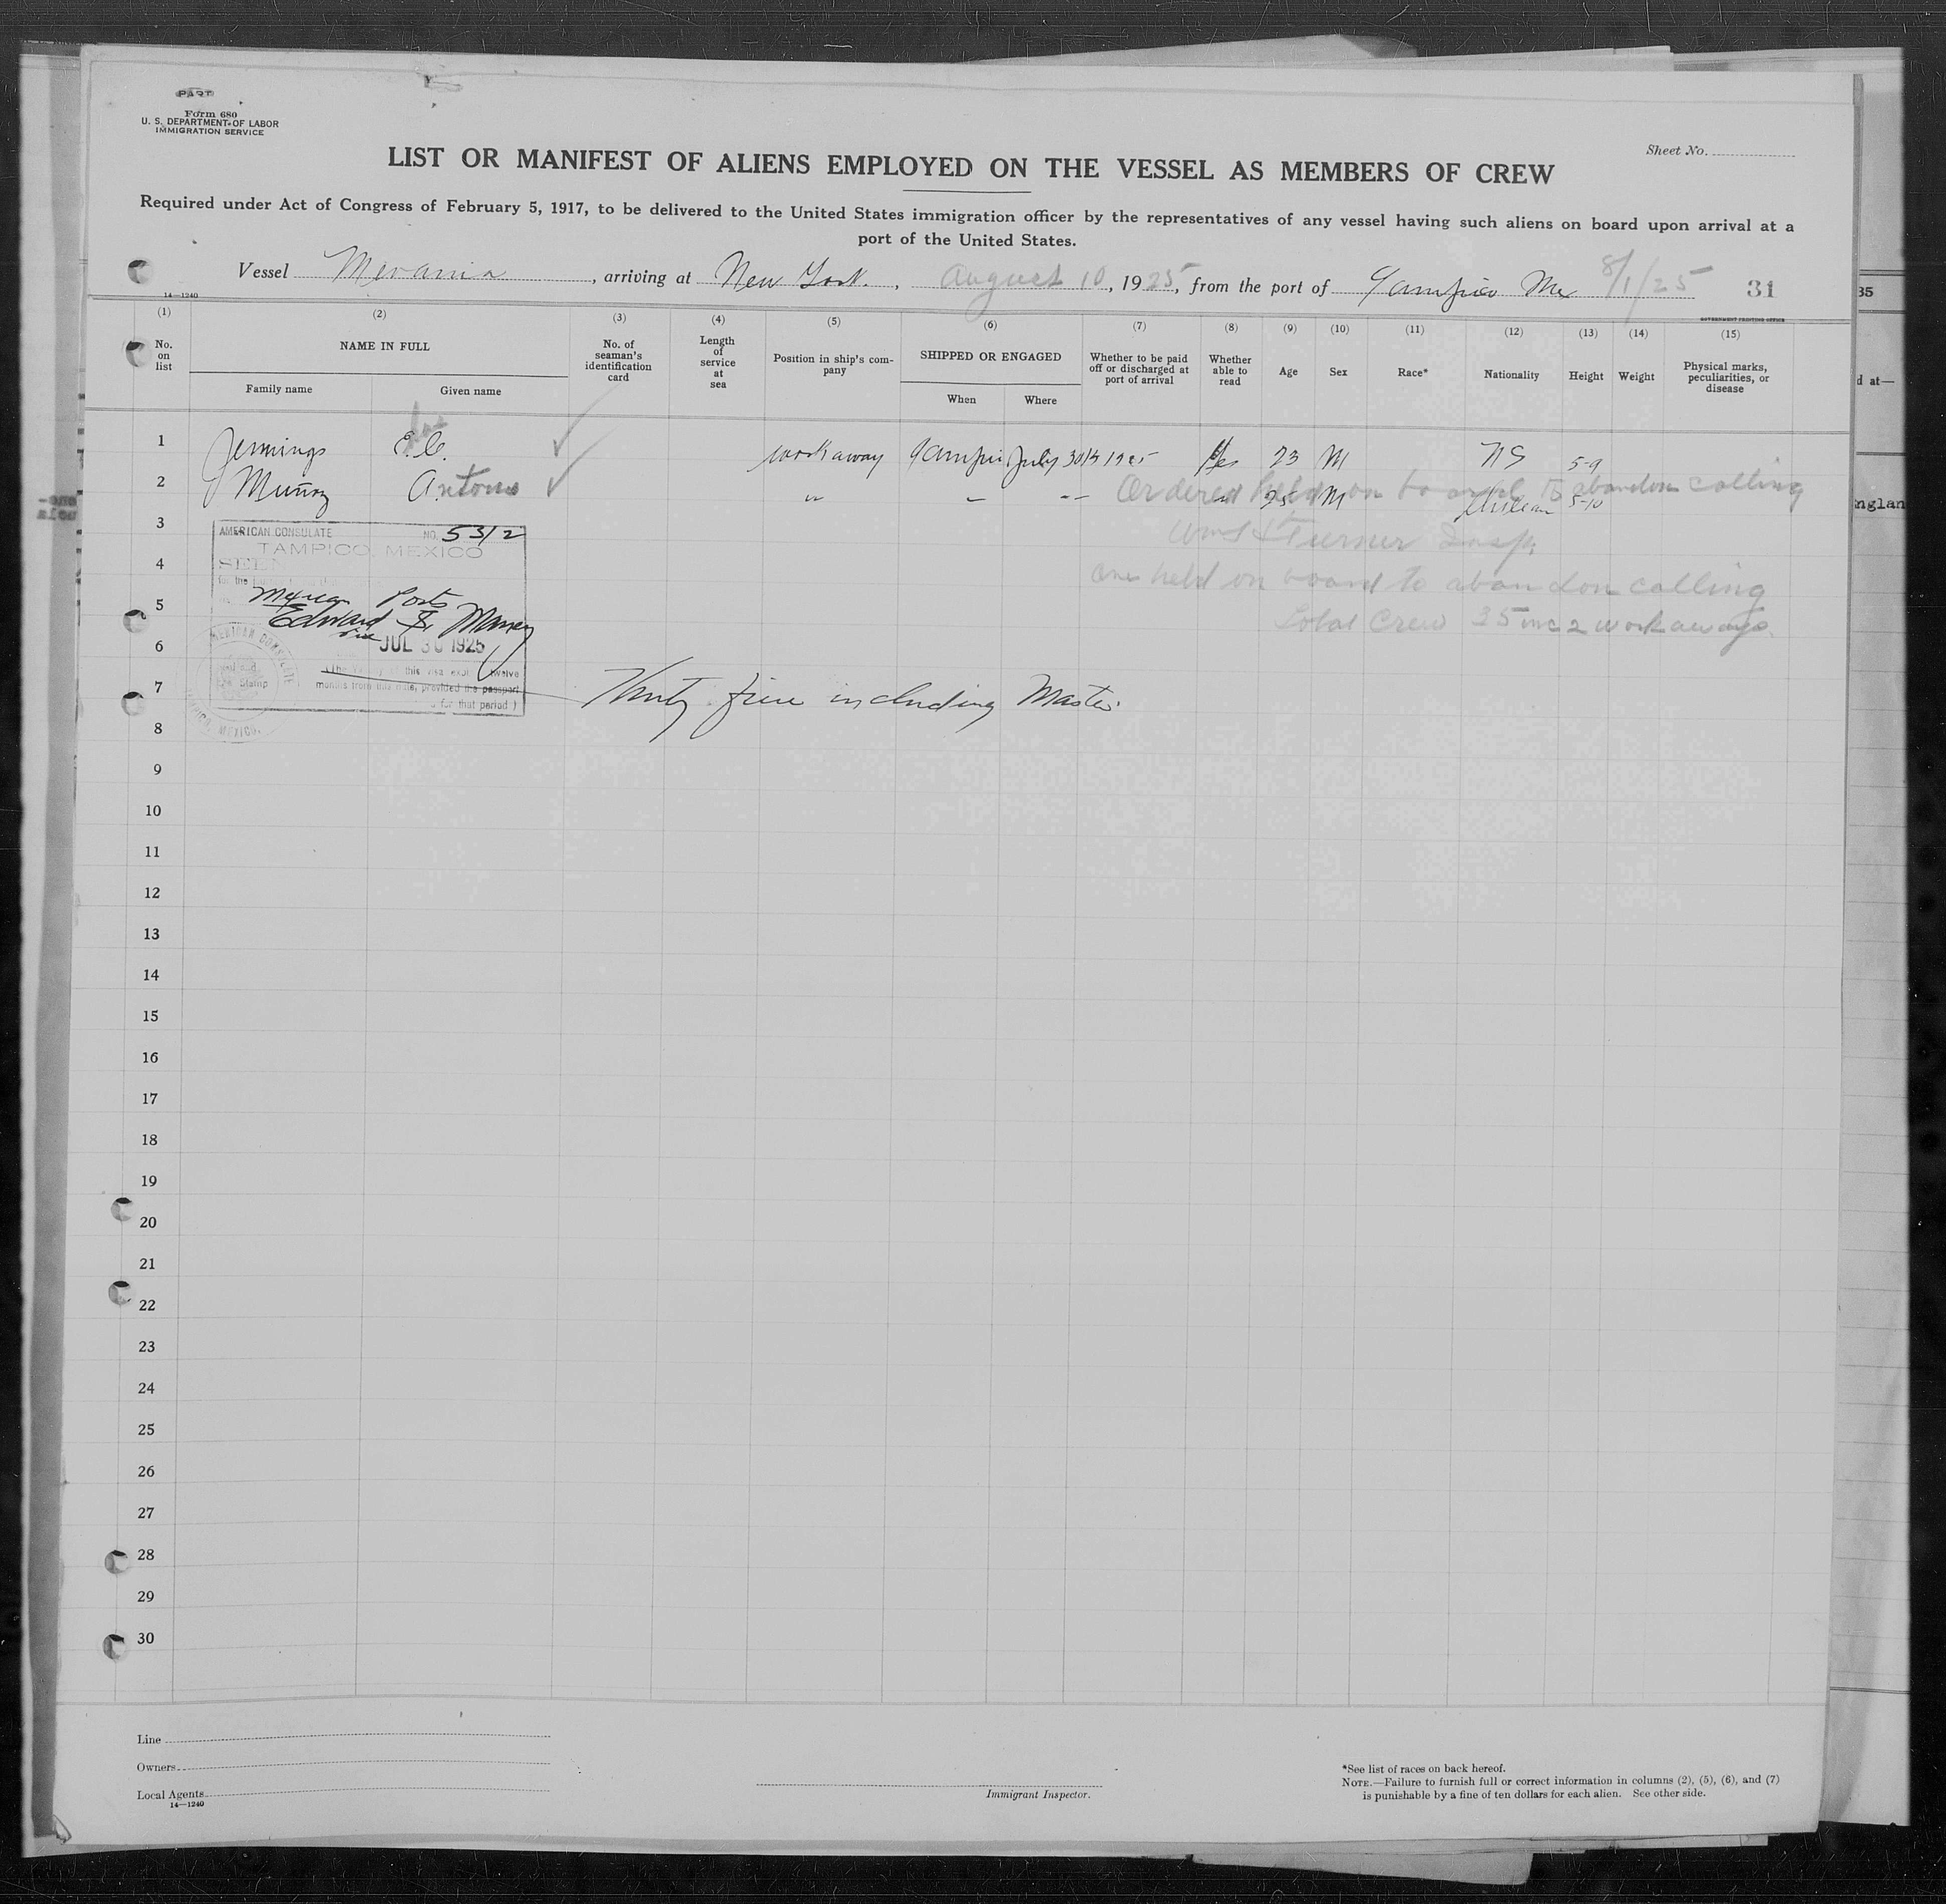 PART
Form 680
U. S. DEPARTMENT OF LABOR
IMMIGRATION SERVICE
Sheet No.
LIST OR MANIFEST OF ALIENS EMPLOYED ON THE VESSEL AS MEMBERS OF CREW
Required under Act of Congress of February 5, 1917, to be delivered to the United States immigration officer by the representatives of any vessel having such aliens on board upon arrival at a
port of the United States.
Vessel, arriving at New York, August 10, 1925, from the port of Tampico Mex 8/1/25 31
14—1240
GOVERNMENT PRINTING OFFICE
(1) (2) (3) (4) (5) (6) (7) (8) (9) (10) (11) (12) (13) (14) (15)
No. on list
NAME IN FULL
Family name
Given name
No. of seaman's identification card
Length of service at sea
Position in ship's company
SHIPPED OR ENGAGED
When
Where
Whether to be paid off or discharged at port of arrival
Whether able to read
Age
Sex
Race*
Nationality
Height
Weight
Physical marks, peculiarities, or disease
1 Jennings E. C. workaway Tampico July 30th 1925 Yes 23 M 5-9
2 Muñoz Antonio " M Chilean 5-10
Ordered held on board to abandon calling
Turner Insp.
one held on board to abandon calling
Total Crew 35 inc 2 workaways
3
AMERICAN CONSULATE NO. 5312
TAMPICO, MEXICO
SEEN
4
5
Mexican Ports
Edward S. Maney
6
JUL 30 1925
of this visa twelve
7
months from this date, provided the passport
for that period)
Thirty five including Master.
8
9
10
11
12
13
14
15
16
17
18
19
20
21
22
23
24
25
26
27
28
29
30
Line
Owners
Local Agents
14—1240
Immigrant Inspector.
*See list of races on back hereof.
NOTE.—Failure to furnish full or correct information in columns (2), (5), (6), and (7)
is punishable by a fine of ten dollars for each alien. See other side.
35
d at—
nglan